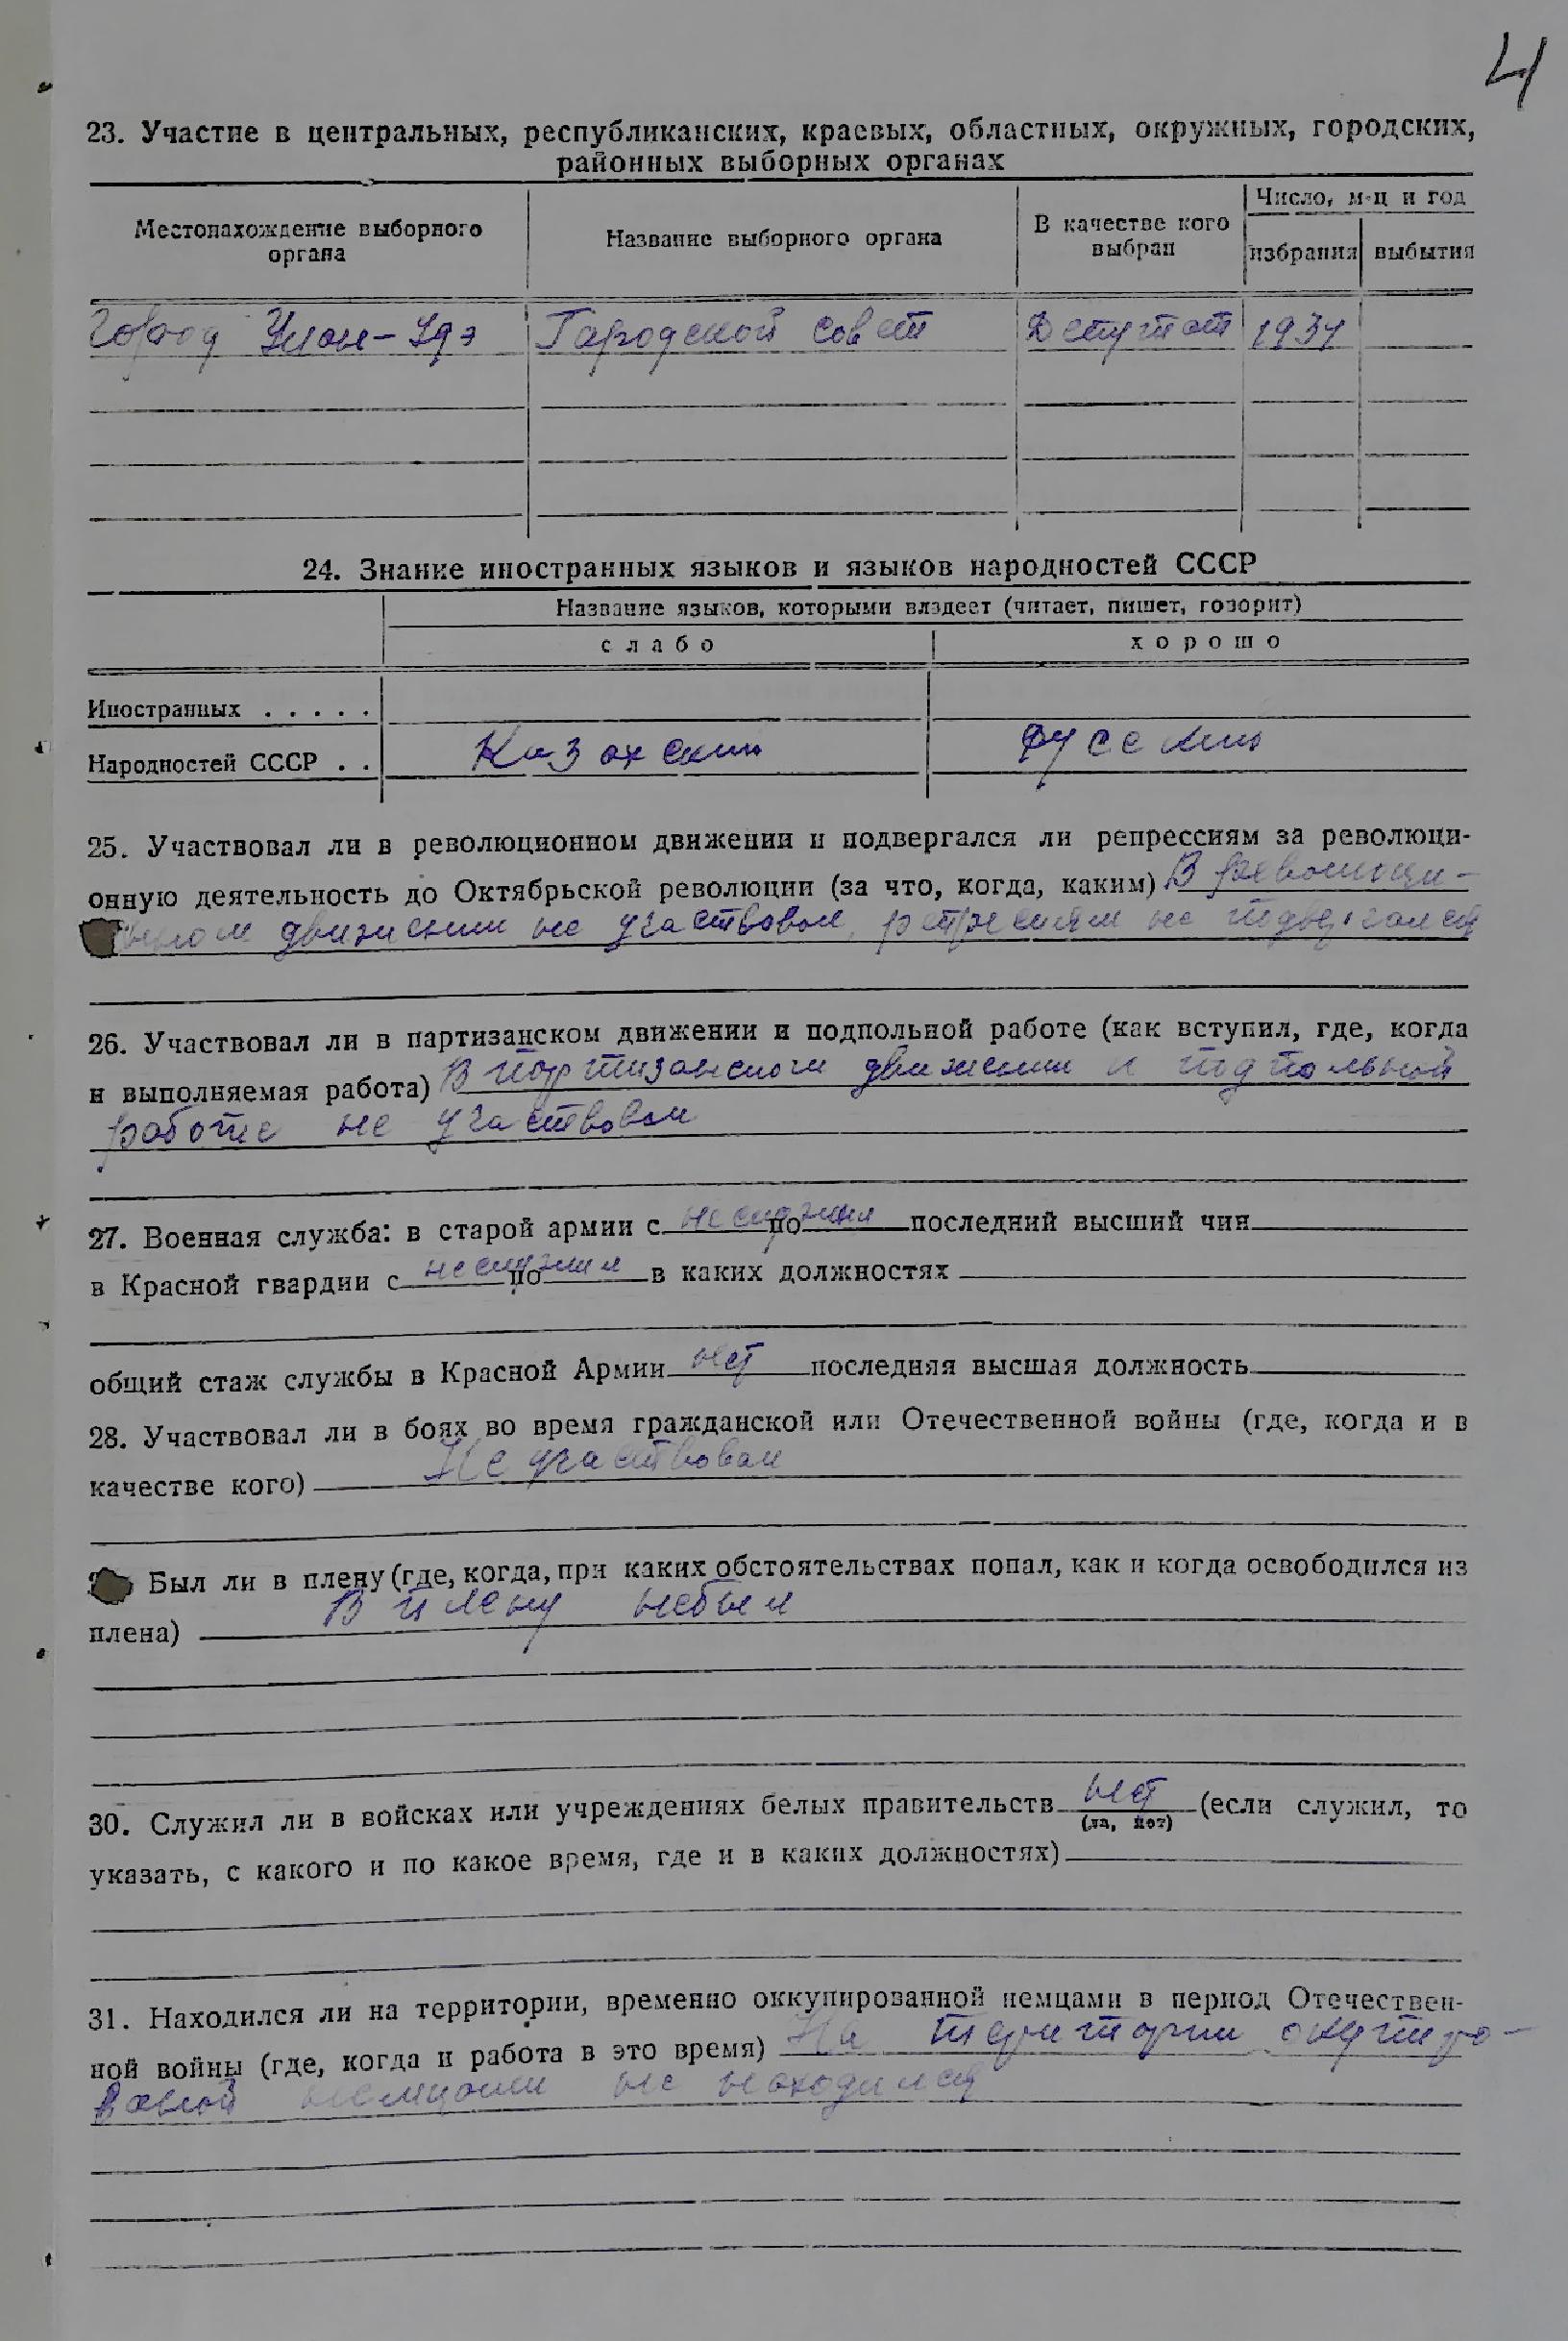 4
23. Участие в центральных, республиканских, краевых, областных, окружных, городских,
районных выборных органах
Местонахождение выборного органа | Название выборного органа | В качестве кого выбран | Число, м-ц и год
избрания | выбытия
Город Улан-Удэ | Городской совет | Депутат | 1934
24. Знание иностранных языков и языков народностей СССР
Название языков, которыми владеет (читает, пишет, говорит)
слабо | хорошо
Иностранных . . . . .
Народностей СССР . . Казахский | русский
25. Участвовал ли в революционном движении и подвергался ли репрессиям за революци-
онную деятельность до Октябрьской революции (за что, когда, каким) В революци-
нном движении не участвовал, репресиям не подвергался
26. Участвовал ли в партизанском движении и подпольной работе (как вступил, где, когда
и выполняемая работа) В партизанском движении и подпольной
работе не участвовал
27. Военная служба: в старой армии с не служил по последний высший чин
в Красной гвардии с не служил по в каких должностях
общий стаж службы в Красной Армии нет последняя высшая должность
28. Участвовал ли в боях во время гражданской или Отечественной войны (где, когда и в
качестве кого) Не участвовал
Был ли в плену (где, когда, при каких обстоятельствах попал, как и когда освободился из
плена) В плену небыл
30. Служил ли в войсках или учреждениях белых правительств нет (если служил, то
(да, нет)
указать, с какого и по какое время, где и в каких должностях)
31. Находился ли на территории, временно оккупированной немцами в период Отечествен-
ной войны (где, когда и работа в это время) На територии окупиро-
ваной немцами не находился